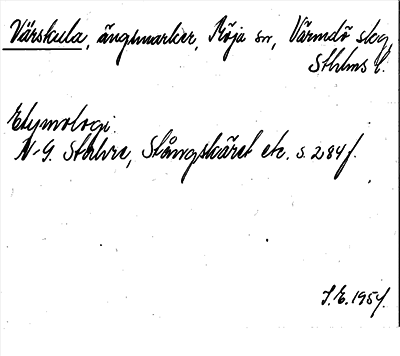 Värskula, ängsmarker, Röja sn, Värmdö skg,
Sthlms l.
Etymologi.
N-G. Stahre, Stångskäret etc. s. 284f.
I.E. 1954.